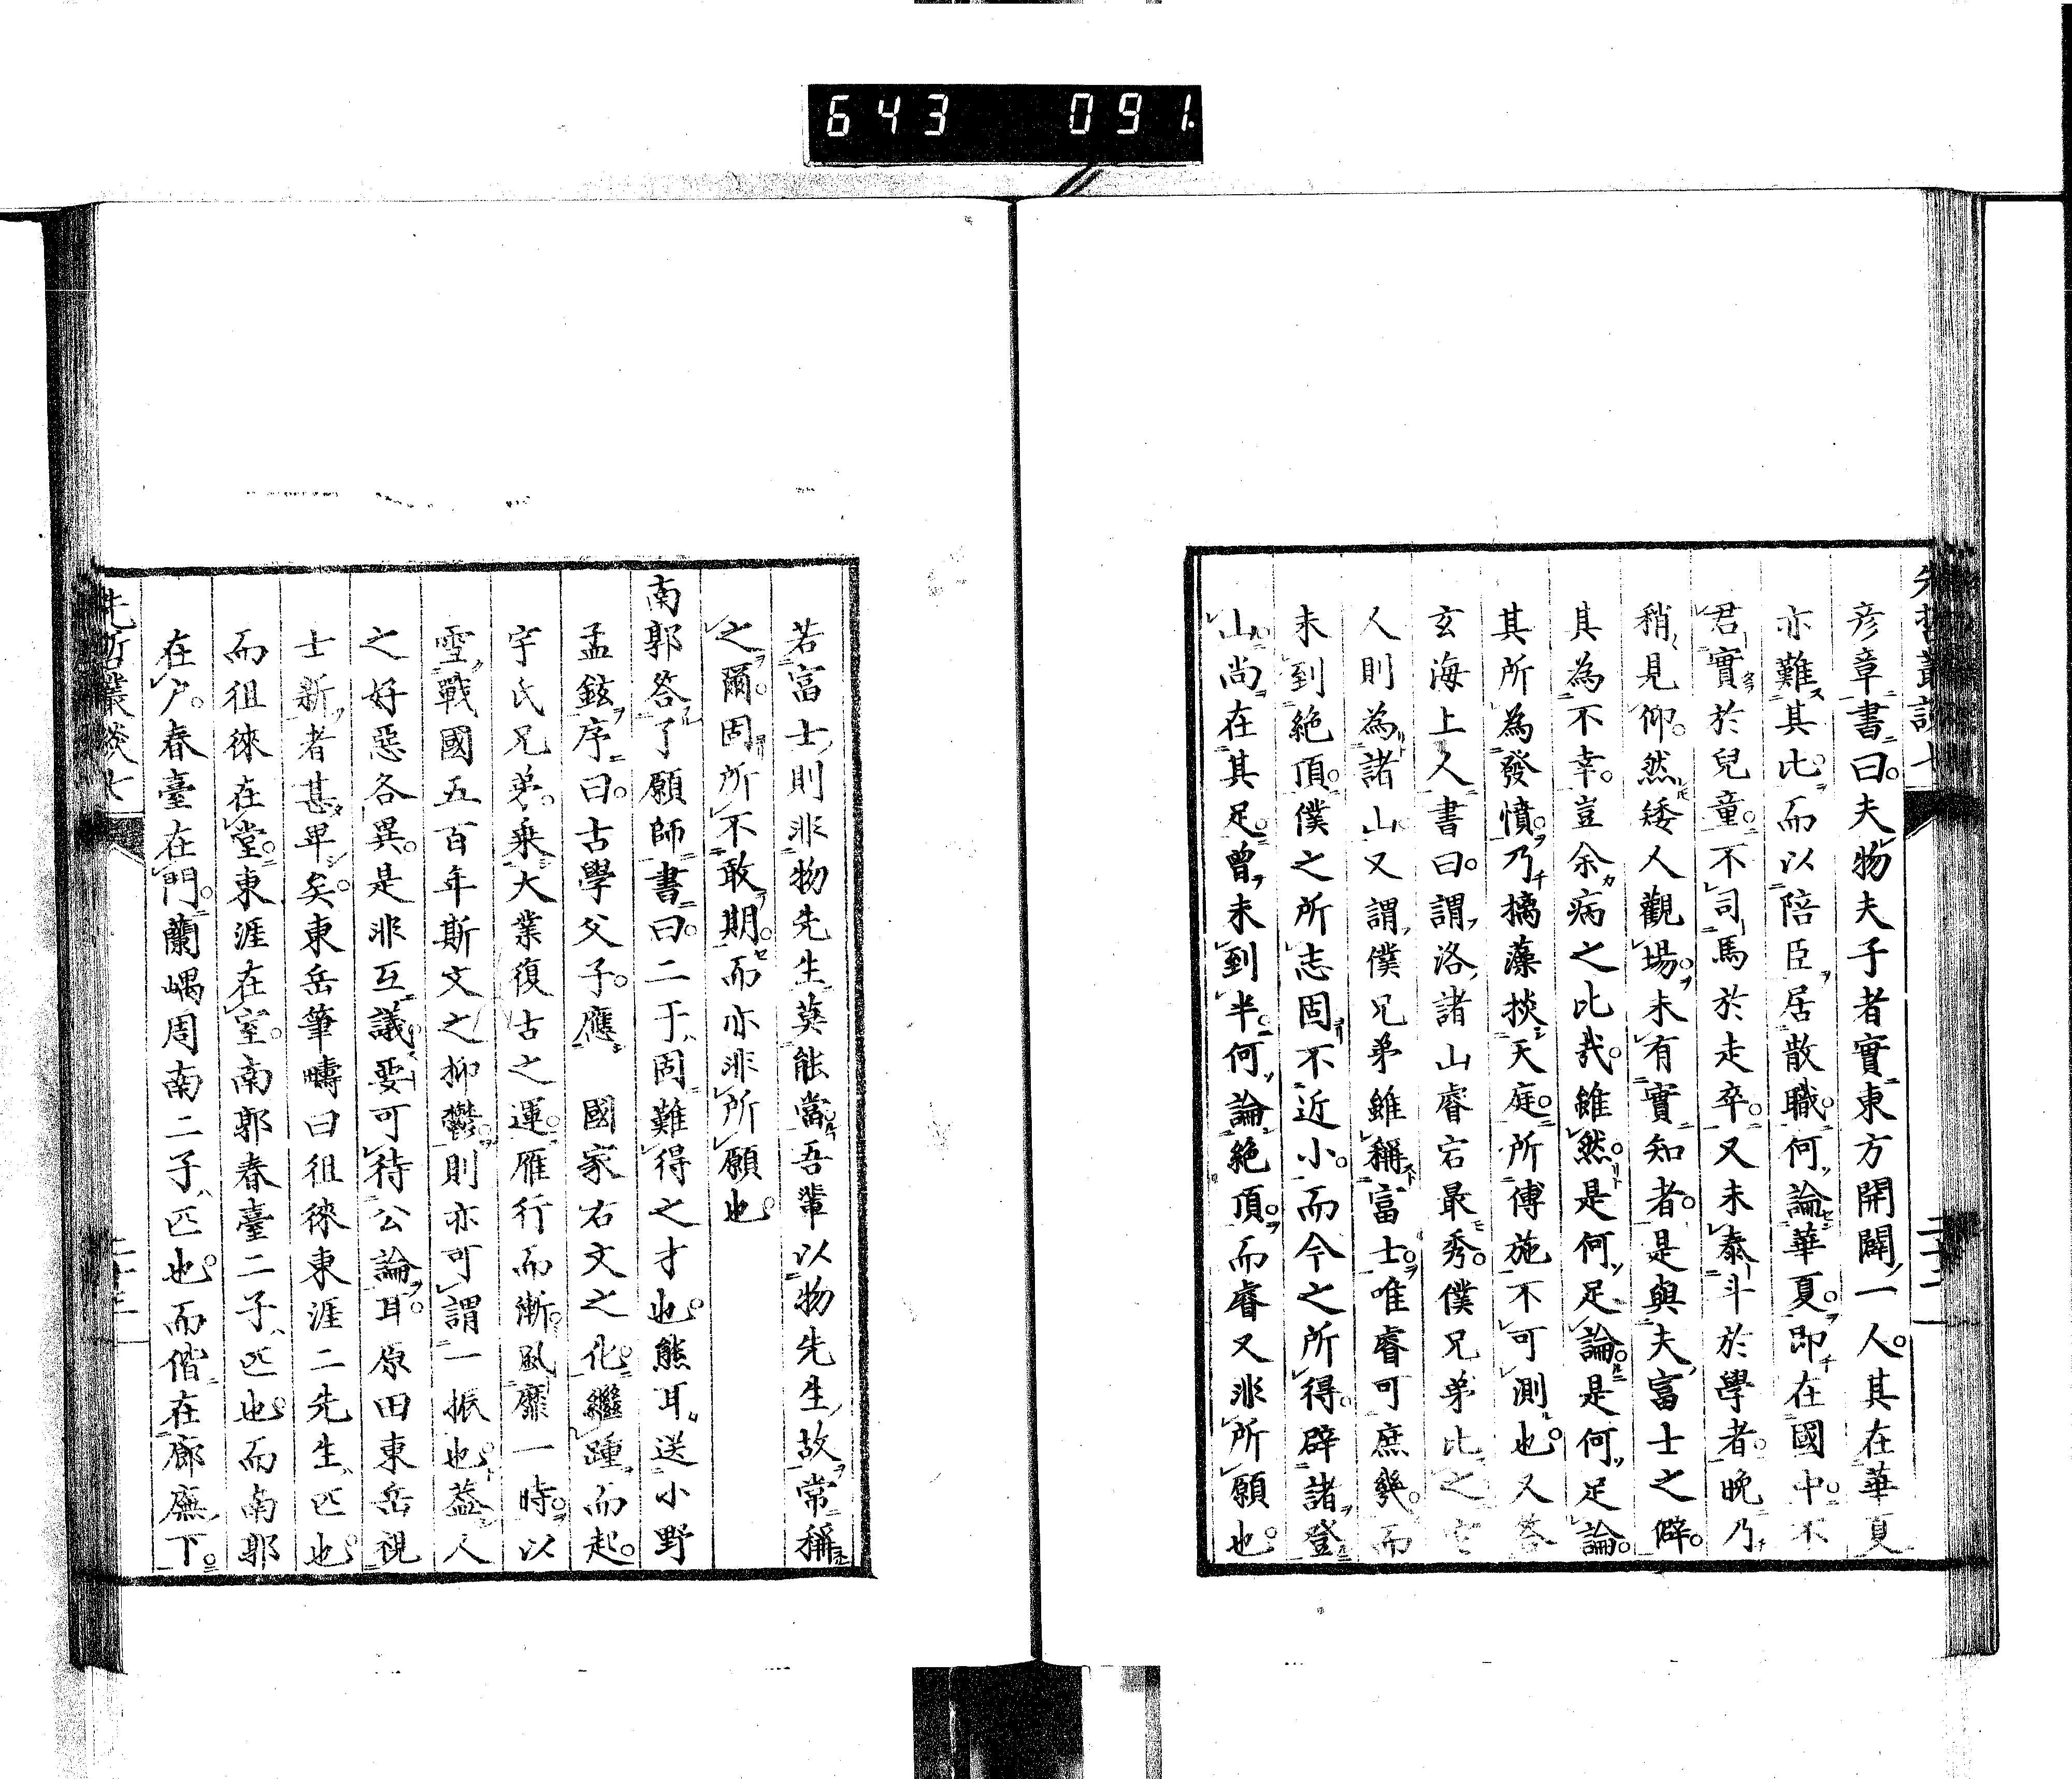 643 091.
先哲叢談七
彥章書曰夫物夫子者實東方開闢一人其在華夏
亦難其比而以陪臣居散職何論華夏即在國中不
君實於兒童不司馬於走卒又未泰斗於學者晚乃
稍見仰然矮人觀場未有實知者是與夫富士之僻
其為不幸豈余病之比哉雖然是何足論是何足論
其所為發憤乃摛藻掞天庭所傅施不可測也又答
玄海上人書曰謂洛諸山睿宕最秀僕兄弟比之它
人則為諸山又謂僕兄弟雖稱富士唯睿可庶幾而
未到絕頂僕之所志固不近小而今之所得辟諸登
山尚在其足曾未到半何論絕頂而睿又非所願也
二十二
若富士則非物先生莫能當吾輩以物先生故常稱
之爾固所不敢期而亦非所願也
南郭答了願師書曰二于固難得之才也熊耳送小野
孟鉉序曰古學父子應 國家右文之化繼踵而起
宇氏兄弟乘大業復古之運雁行而漸風靡一時以
雪戰國五百年斯文之抑鬱則亦可謂一振也蓋人
之好惡各異是非互議要可待公論耳原田東岳視
士新者甚卑矣東岳筆疇曰徂徠東涯二先生匹也
而徂徠在堂東涯在室南郭春臺二子匹也而南郭
在戶春臺在門蘭嵎周南二子匹也而偕在廊廡下
先哲叢談七
二十三